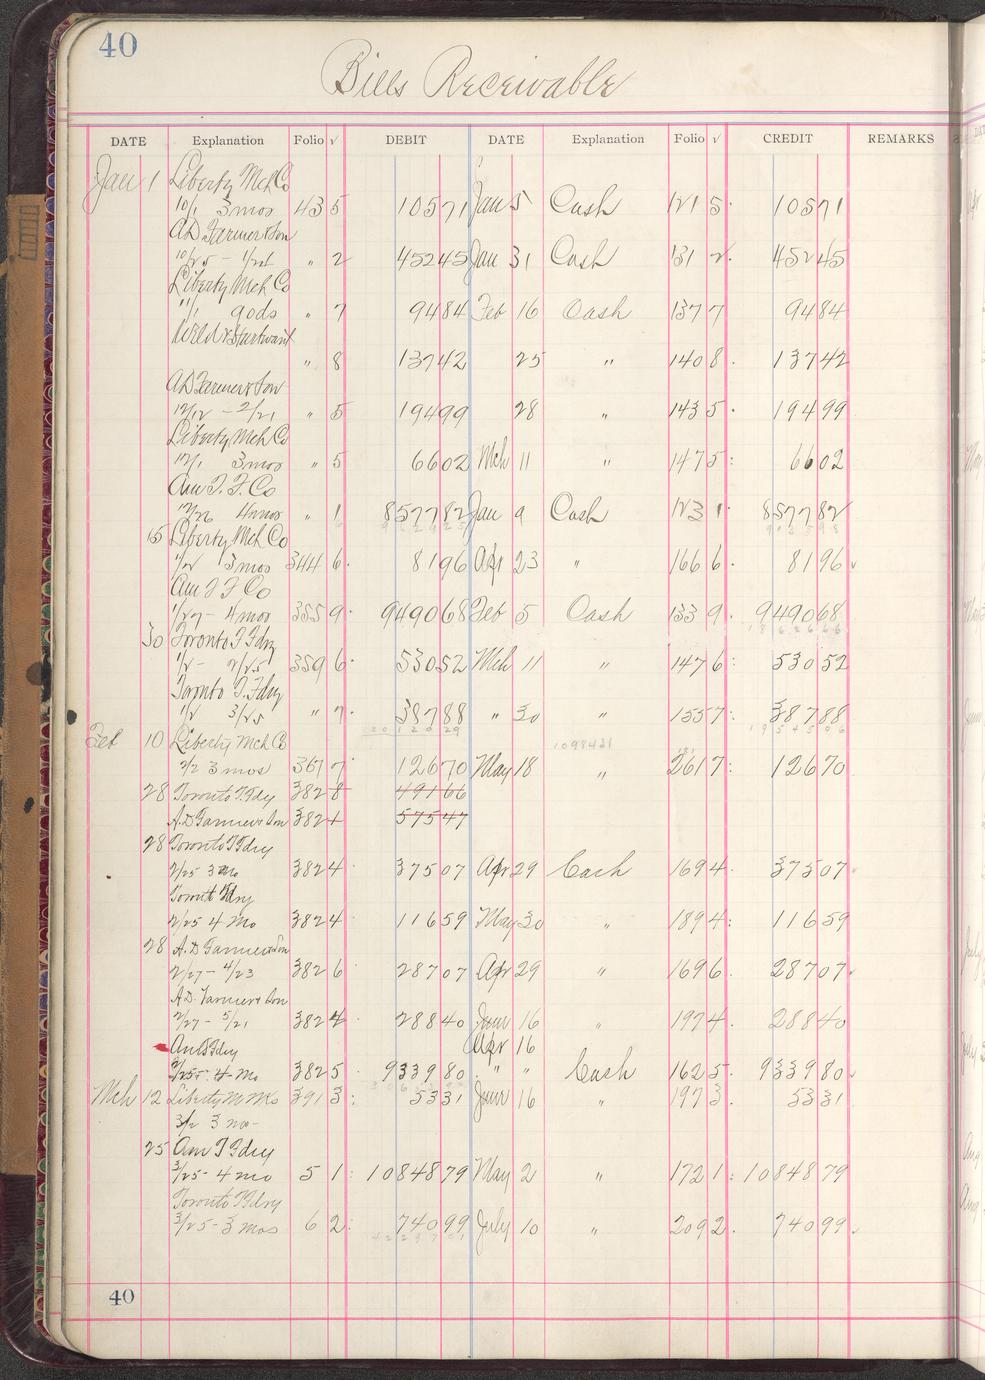 40
Bills Receivable
DATE Explanation Folio √ DEBIT DATE Explanation Folio √ CREDIT REMARKS
Jan 1 Liberty Mch Co
10/1 3 mos 43 5 105 71 Jan 5 Cash 121 5 105 71
A D Farmer & Son
10/25 - 1/21 " 2 452 45 Jan 31 Cash 131 2 452 45
Liberty Mch Co
11/1 90ds " 7 94 84 Feb 16 Cash 137 7 94 84
" 8 137 42 25 " 140 8 137 42
A D Farmer & Son
12/12 - 2/21 " 5 194 99 28 " 143 5 194 99
Liberty Mch Co
12/1 3 mos " 5 66 02 Mch 11 " 147 5 66 02
Am T. F. Co
12/26 4 mos " 1 8577 82 Jan 9 Cash 123 1 8577 82
15 Liberty Mch Co
1/2 3 mos 344 6 81 96 Apr 23 " 166 6 81 96
Am T F Co
1/27 - 4 mos 355 9 9490 68 Feb 5 Cash 133 9 9490 68
30 Toronto T Fdry
1/2 - 2/25 359 6 530 52 Mch 11 " 147 6 530 52
Toronto T. Fdry
1/2 3/25 " 7 387 88 " 30 " 155 7 387 88
Feb 10 Liberty Mch Co 1098421
2/2 3 mos 367 7 126 70 May 18 " 261 7 126 70
28 Toronto T. Fdry 382 8 491 66
A. D Farmer & Son 382 1 575 47
28 Toronto T Fdry
2/25 3 Mo 382 4 375 07 Apr 29 Cash 169 4 375 07
Toront Fdry
2/25 4 Mo 382 4 116 59 May 30 " 189 4 116 59
28 A. D Farmer & Son
2/27 - 4/23 382 6 287 07 Apr 29 " 169 6 287 07
A. D. Farmer & Son
2/27 - 5/21 382 4 288 40 June 16 " 197 4 288 40
Am T Fdry Apr 16
2/25 - 4 - Mo 382 5 9339 80 " " Cash 162 5 9339 80
Mch 12 Liberty M Mks 391 3 53 31 June 16 " 197 3 53 31
3/2 3 mo -
25 Am T Fdry
3/25 - 4 mo 5 1 10848 79 May 2 " 172 1 10848 79
Toronto T Fdry
3/25 - 3 mos 6 2 740 99 July 10 " 209 2 740 99
40